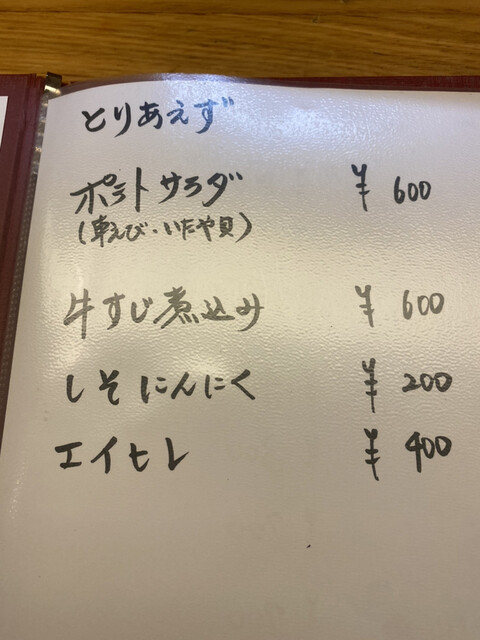 とりあえず
ポテトサラダ ¥600
(車えび・いたや貝)
牛すじ煮込み ¥600
しそにんにく ¥200
エイヒレ ¥400